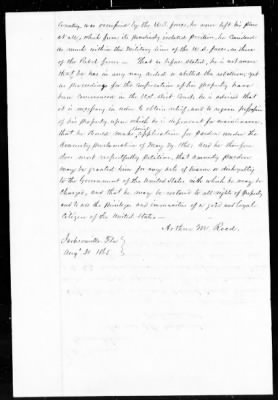 Country was occupied by the U.S. forces, he never left his place
at all, which from its peculiarly isolated position, he considered
as much within the Military lines of the U.S. forces, as those
of the Rebel forces — That as before stated, he is not aware
that he has in any way aided or abetted the rebellion, yet
as proceedings for the confiscation of his property have
been commenced in the U.S. Dist. Court, he is advised that
it is necessary in order to obtain relief, and to regain possession
of his Property, upon which he is dependent for maintenance,
that he should make application for pardon under the
Amnesty Proclamation of May 29. 1865, and he therefore
does most respectfully Petition, that Amnesty & Pardon
may be granted him for any acts of treason or disloyalty
to the Government of the United States with which he may be
charged, and that he may be restored to all rights of Property
and to all the Privileges and immunities of a good and loyal
Citizen of the United States —
Arthur M. Reed.
Jacksonville Fla
Aug. 30 1865